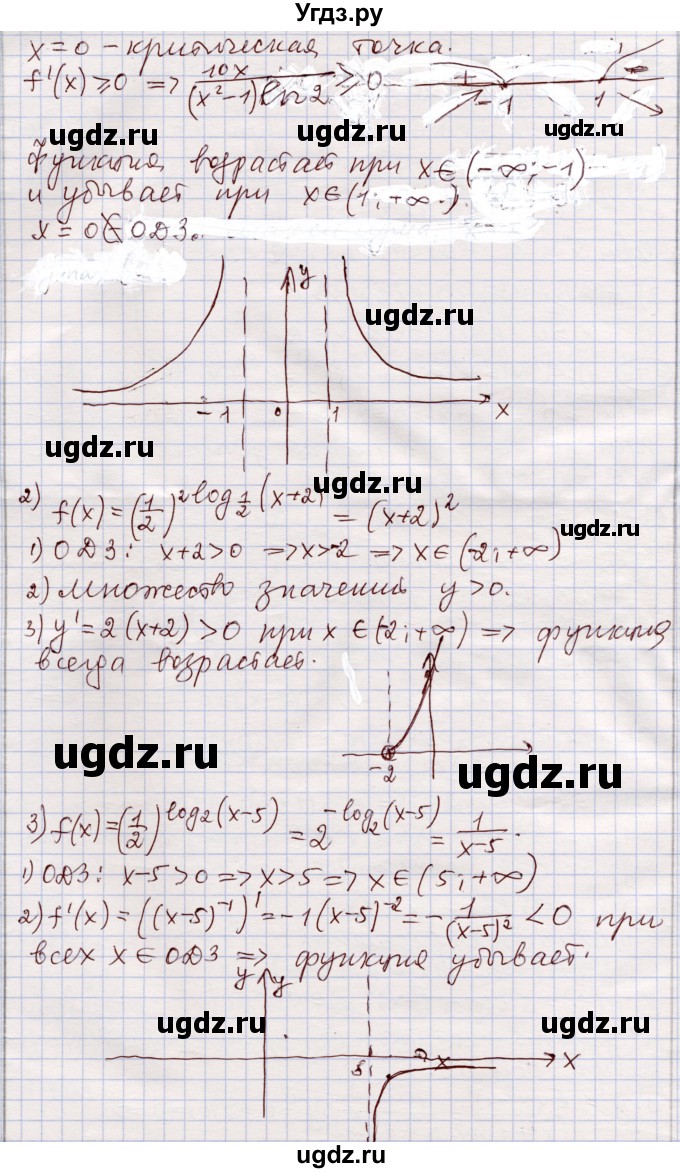 Угдз.ру
x = 0 – критическая точка.
f'(x) ≥ 0 => 10x / (x² – 1) ln 2 ≥ 0 + – –1 1
ugdz.ru ugdz.ru ugdz.ru
Функция возрастает при x ∈ (–∞; –1)
и убывает при x ∈ (1; +∞)
x = 0 ∉ ОДЗ.
y
ugdz.ru
–1 0 1 x
ugdz.ru
2) f(x) = (1/2)^(2 log_(1/2) (x+2)) = (x+2)²
ugdz.ru
1) ОДЗ: x+2>0 => x>-2 => x ∈ (-2; +∞)
2) Множество значений y>0.
3) y' = 2(x+2) > 0 при x ∈ (-2; +∞) => функция
всегда возрастает.
ugdz.ru
–2
ugdz.ru
3) f(x) = (1/2)^(log₂(x-5)) = 2^(-log₂(x-5)) = 1/(x-5).
1) ОДЗ: x-5>0 => x>5 => x ∈ (5; +∞)
2) f'(x) = ((x-5)⁻¹)' = -1(x-5)⁻² = - 1/(x-5)² < 0 при
всех x ∈ ОДЗ => функция убывает.
y y
ugdz.ru ugdz.ru
5 x x
ugdz.ru